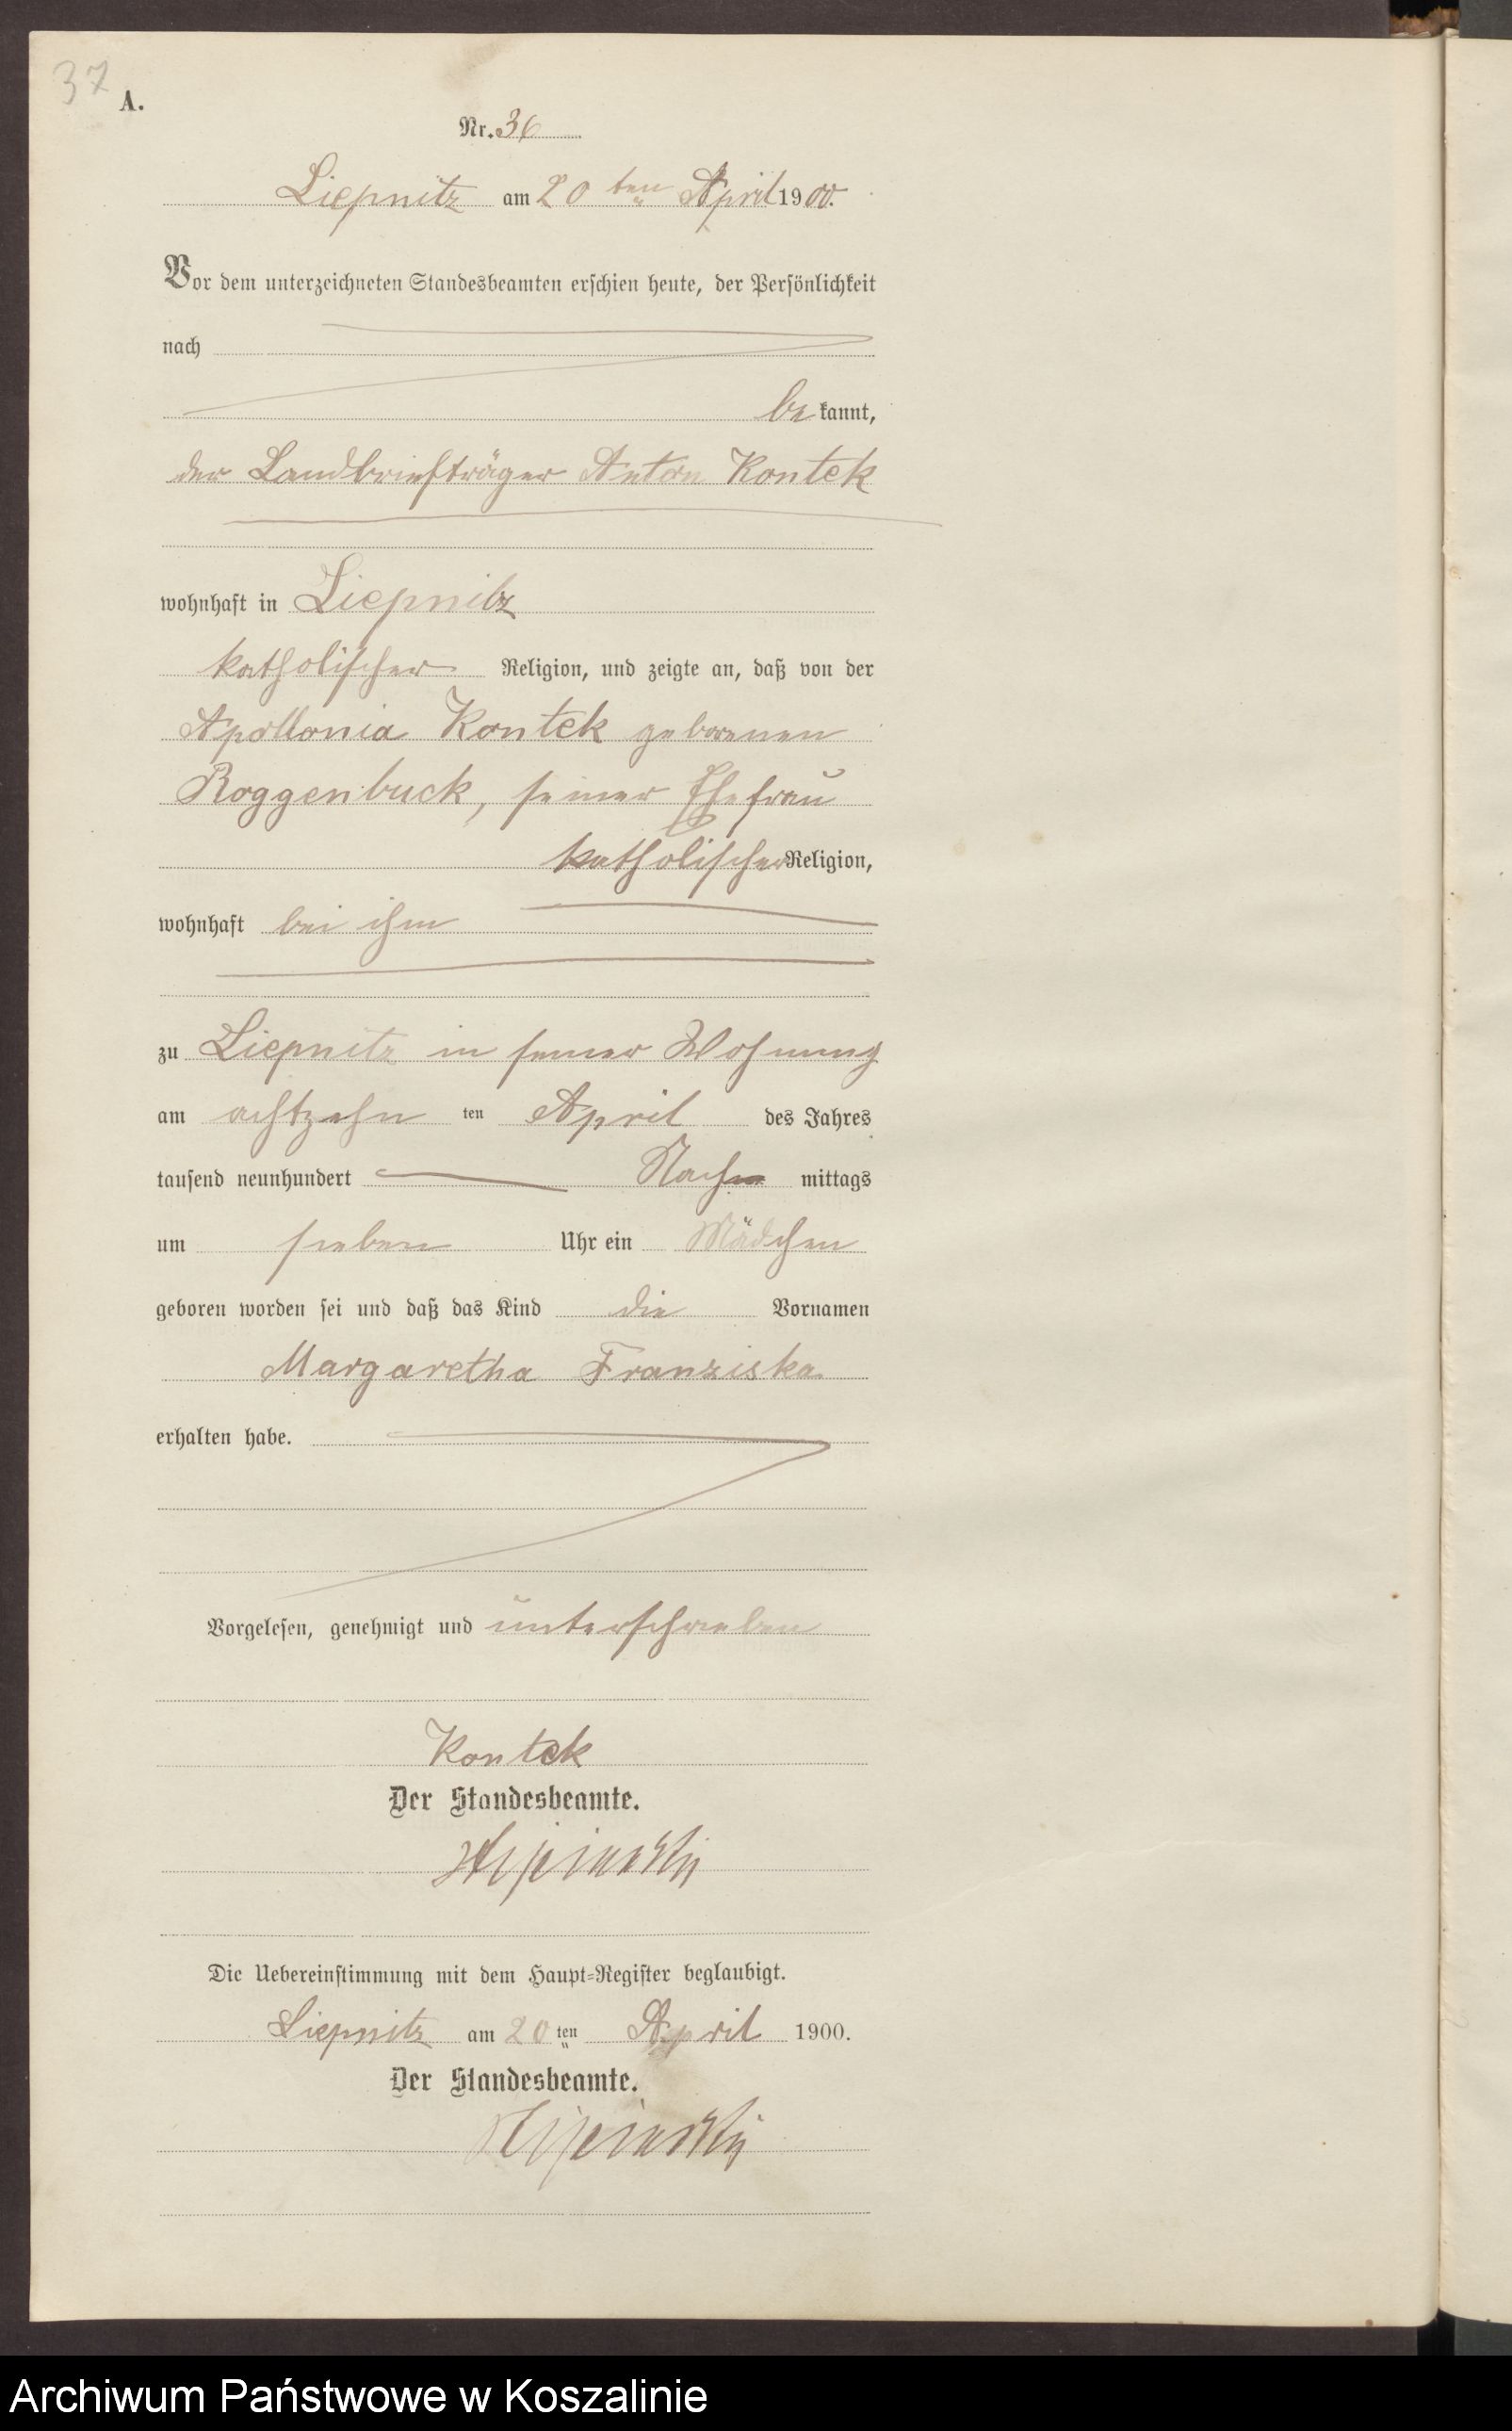 37
A.
Nr. 36
Liepnitz am 20 ten April 1900.
Vor dem unterzeichneten Standesbeamten erschien heute, der Persönlichkeit
nach
be kannt,
der Landbriefträger Anton Kontek
wohnhaft in Liepnitz
katholischer Religion, und zeigte an, daß von der
Apollonia Kontek geborenen
Roggenbuck, seiner Ehefrau
katholischer Religion,
wohnhaft bei ihm
zu Liepnitz in seiner Wohnung
am achtzehn ten April des Jahres
tausend neunhundert Nach mittags
um sieben Uhr ein Mädchen
geboren worden sei und daß das Kind die Vornamen
Margaretha Franziska
erhalten habe.
Vorgelesen, genehmigt und unterschrieben
Kontek
Der Standesbeamte.
Die Uebereinstimmung mit dem Haupt-Register beglaubigt.
Liepnitz am 20 ten April 1900.
Der Standesbeamte.
Archiwum Państwowe w Koszalinie